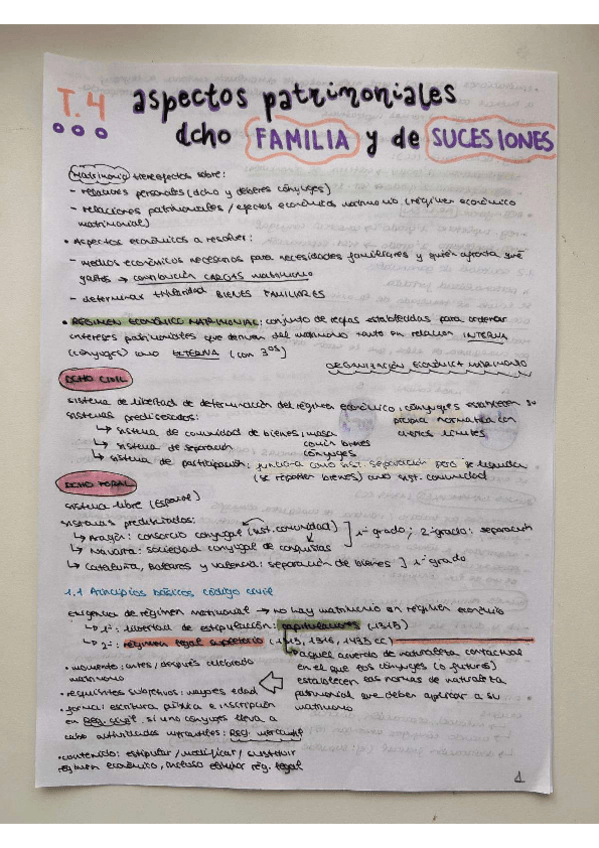 T.4 aspectos patrimoniales
dcho FAMILIA y de SUCESIONES
Matrimonio efectos sobre:
- relaciones personales (dcho y deberes cónyuges)
- relaciones patrimoniales / efectos económicos matrimonio (régimen económico
matrimonial)
• Aspectos económicos a resolver:
- medios económicos necesarios para necesidades familiares y quién aporta qué
gastos → contribución CARGAS matrimonio
- determinar titularidad BIENES FAMILIARES
• RÉGIMEN ECONÓMICO MATRIMONIAL: conjunto de reglas establecidas para ordenar
intereses patrimoniales que derivan del matrimonio tanto en relación INTERNA
(cónyuges) como EXTERNA (con 3os)
ORGANIZACIÓN ECONÓMICA MATRIMONIO
DCHO CIVIL
sistema de libertad de determinación del régimen económico: cónyuges establecen su
propia normativa con
ciertos límites
sistemas predilectados:
↳ sistema de comunidad de bienes: masa
común bienes
cónyuges
↳ sistema de separación
↳ sistema de participación: funciona como sist. separación pero se liquida
(se reparten bienes) como sist. comunidad
DCHO FORAL
sistema libre (España)
sistemas predilectados:
↳ Aragón: consorcio conyugal (sist. comunidad)
↳ Navarra: sociedad conyugal de conquistas
] 1er grado; 2º grado: separación
↳ Cataluña, Baleares y Valencia: separación de bienes ] 1er grado
1.1 Principios básicos código civil
Exigencia de régimen matrimonial → no hay matrimonio sin régimen económico
↳ 1º: libertad de estipulación: capitulaciones (1315)
↳ 2º: régimen legal supletorio (1315, 1316, 1435 CC)
→ aquel acuerdo de naturaleza contractual
en el que los cónyuges (o futuros)
establecen las normas de naturaleza
patrimonial que deben aplicar a su
matrimonio
• momento: antes / después celebrado
matrimonio
• requisitos subjetivos: mayores edad
• forma: escritura pública e inscripción
en Reg. Civil. si uno cónyuges lleva a
cabo actividades mercantiles: Reg. mercantil
• contenido: estipular / modificar / sustituir
régimen económico, incluso excluir rég. legal
1